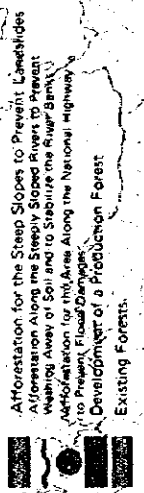 Afforestation for the Steep Slopes to Prevent Landslides
Afforestation Along the Steeply Sloped Rivers to Prevent
Washing Away of Soil and to Stabilize the River Banks
Afforestation for the Area Along the National Highway
to Prevent Flood Damages
Development of a Production Forest
Existing Forests